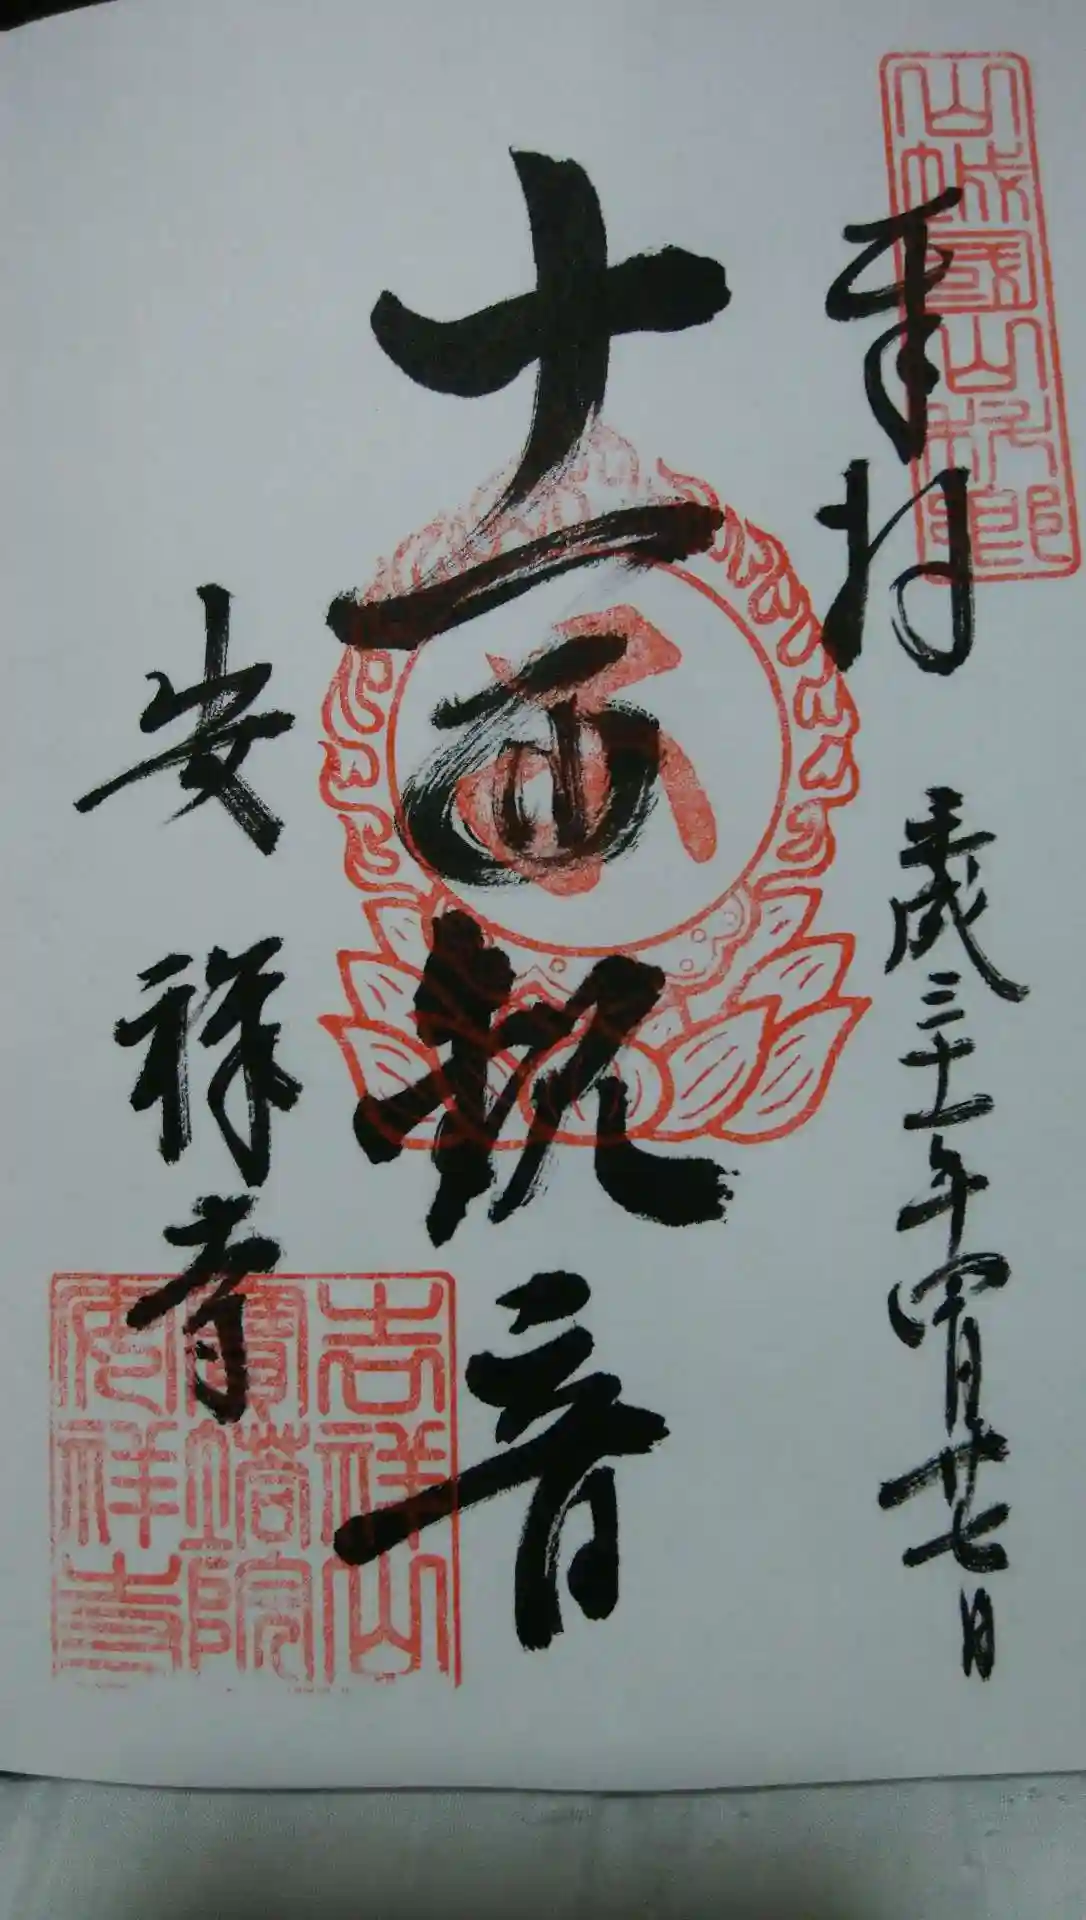 奉拝
平成三十一年四月廿七日
山城國山科郷
十一面観音
安祥寺
吉祥山
寶塔院
安祥寺